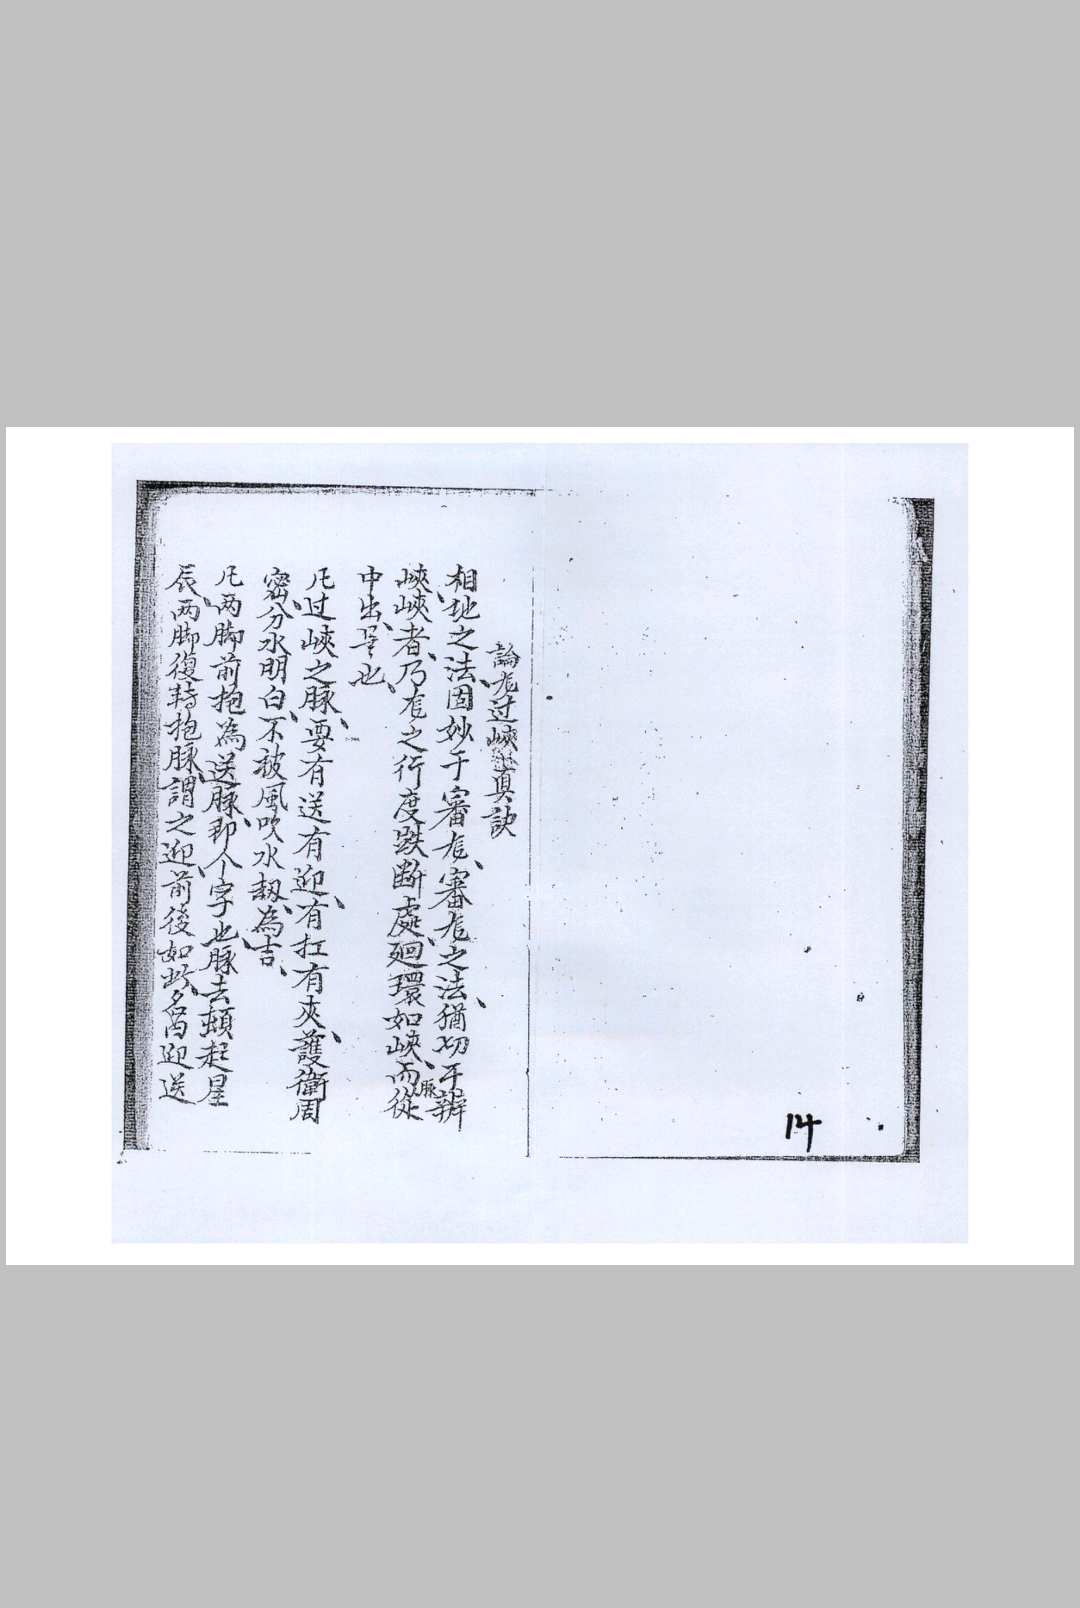 論龙过峽真訣
相地之法、固妙于審龙、審龙之法、猶切于辨
峽、峽者、乃龙之行度跌断處、廻環如峽、而脉從
中出是也、
凡过峽之脉、要有送有迎、有扛有夾、護衛周
密、分水明白、不被風吹水刼、為吉、
凡两脚前抱為送脉、即个字也、脉去頓起星
辰、两脚復轉抱脉、謂之迎、前後如此、名為迎送
14